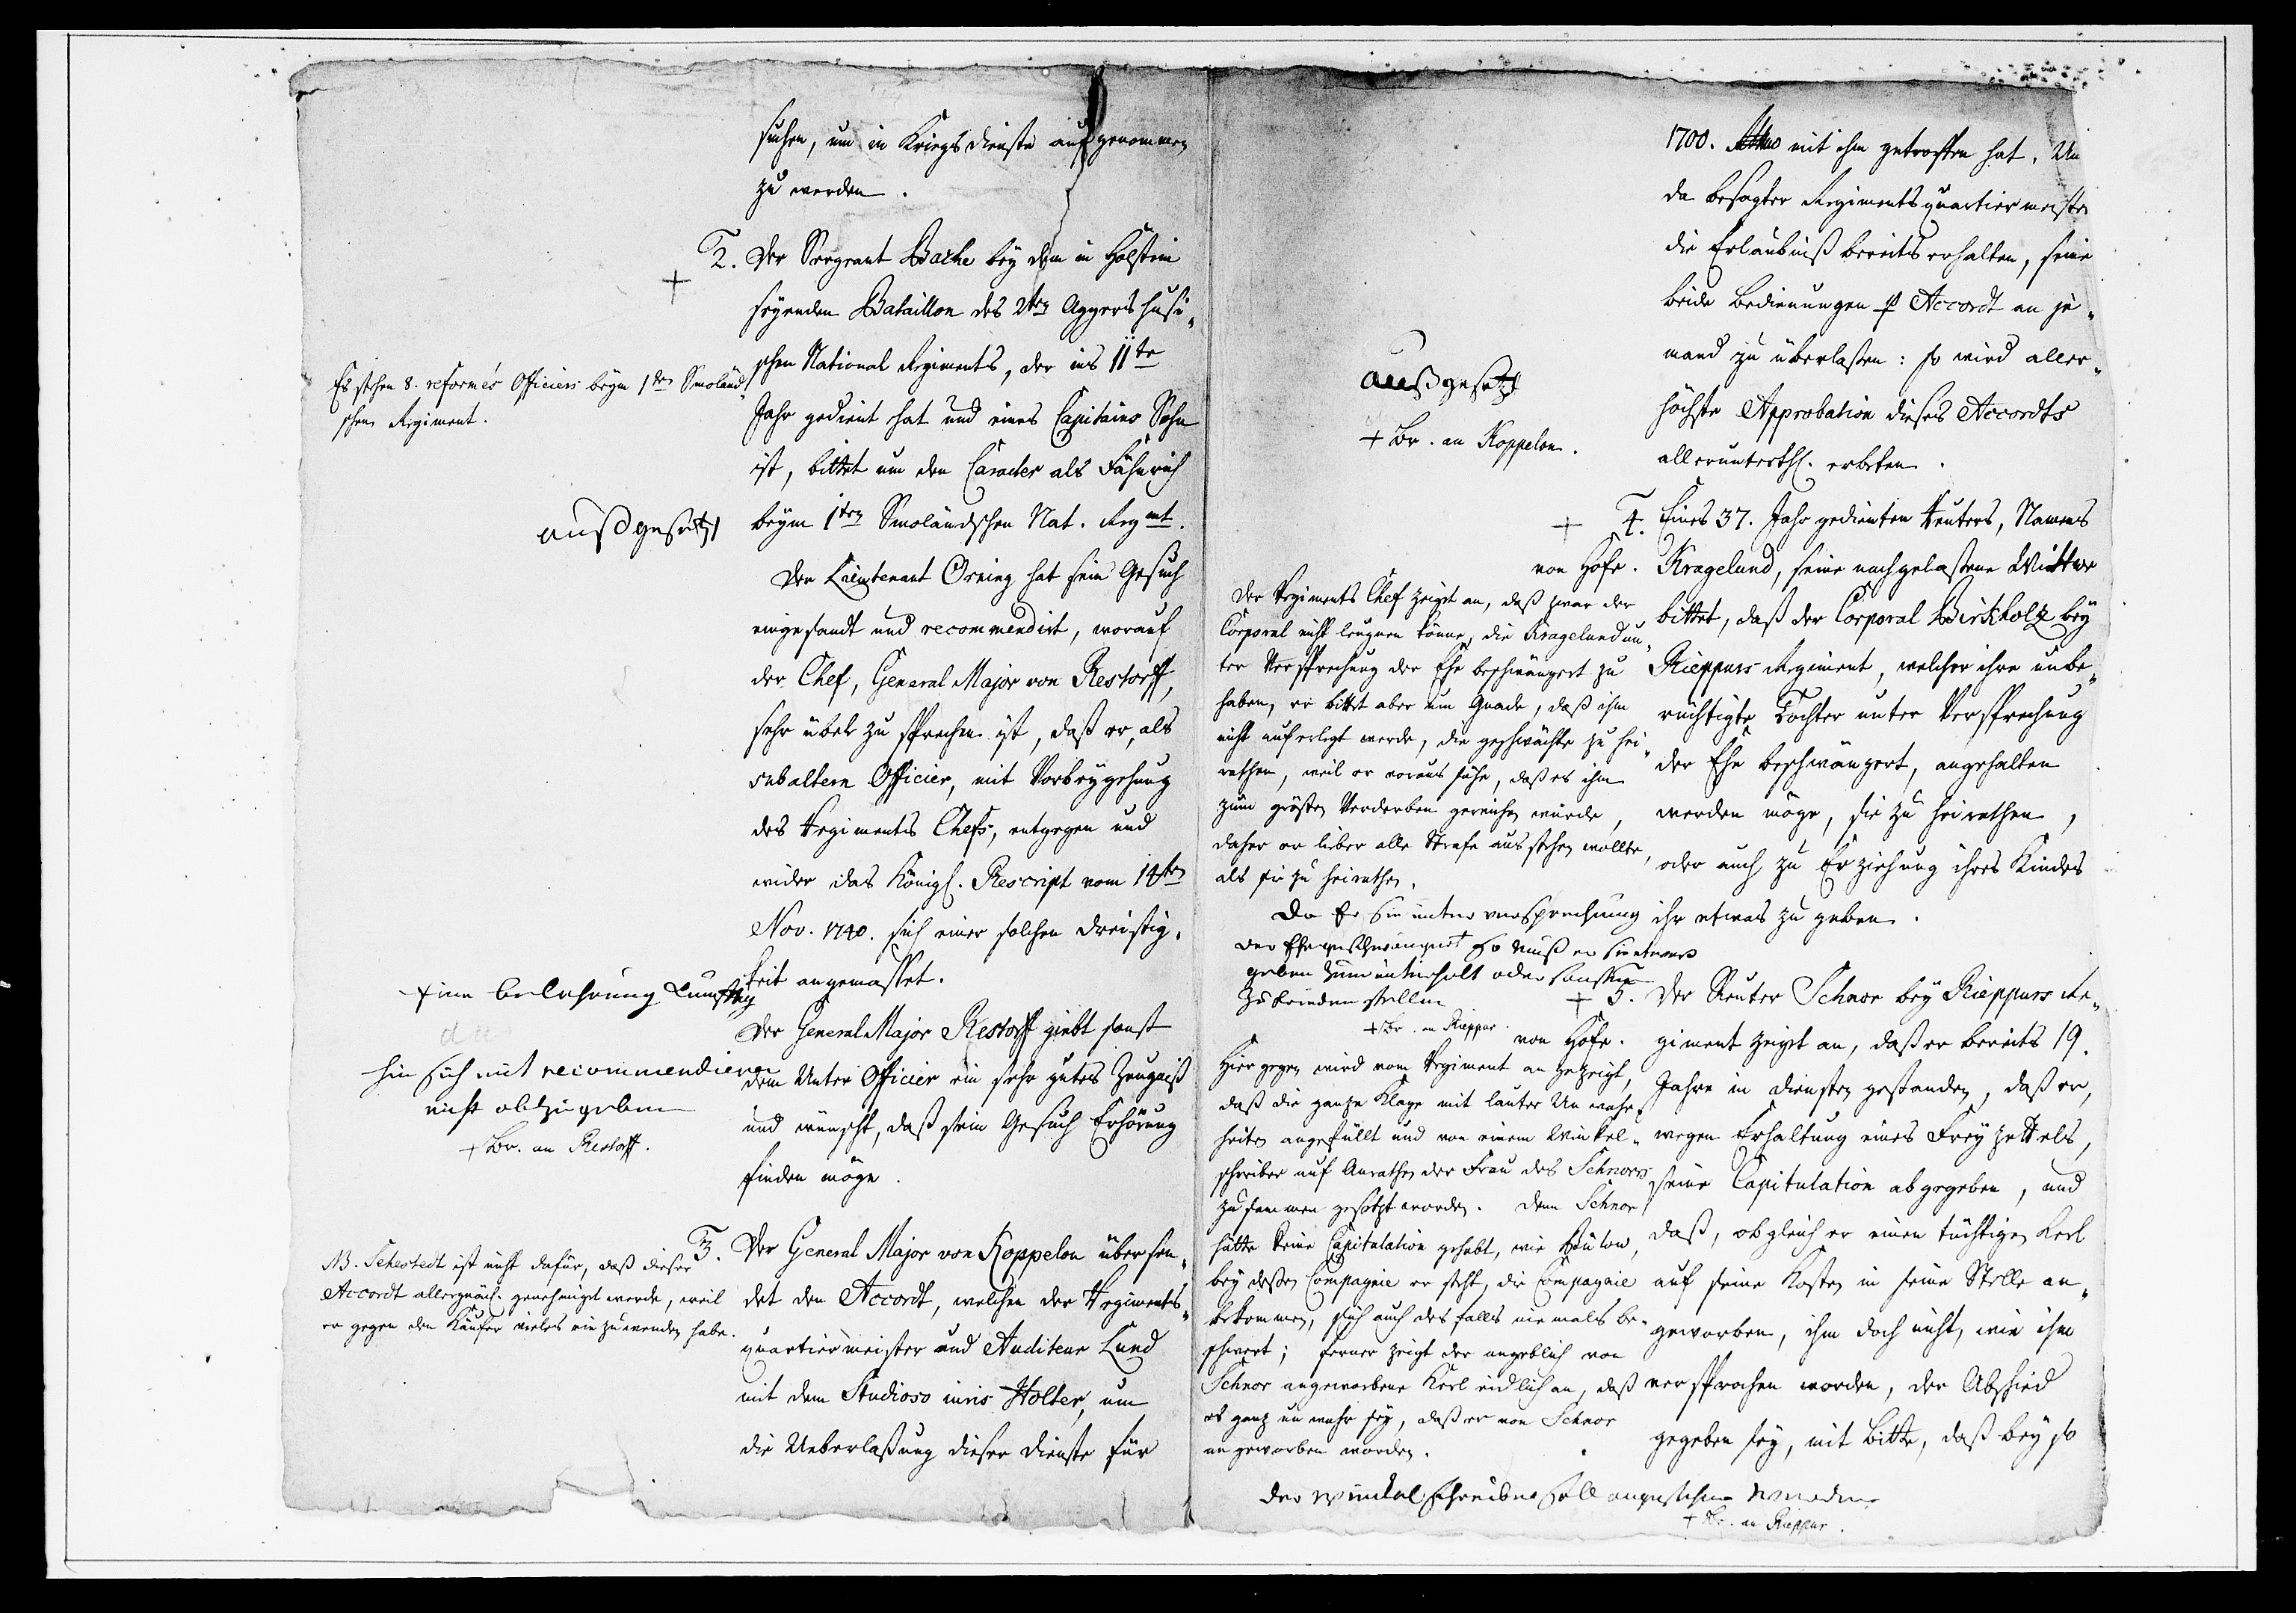 suchen, um in Kriegsdienste aufgenommen
zu werden.
2. Der Sergeant Bache bey dem in Holstein
seyenden Bataillon des 2ten Aggershusi-
schen National Regiments, der ins 11te
Jahr gedient hat und eines Capitains Sohn
ist, bittet um den Caracter als Fähnrich
beym 1ten Smoländschen Nat. Regmt.
Es stehen 8. reformés Officiers beym 1ten Smoländ-
schen Regiment.
außgesetzt
Der Lieutenant Örning hat sein Gesuch
eingesandt und recommendirt, worauf
der Chef, General Major von Restorff,
sehr übel zu sprechen ist, daß er, als
subaltern Officier, mit Vorbeygehung
des Regiments Chefs, entgegen und
wider das Königl. Rescript vom 14ten
Nov. 1740. sich einer solchen Dreistig-
keit angemasset.
eine belehrung Kunfftig
hin sich mit recommendieren
nicht abzugeben
+ Br. an Restorff.
Der General Major Restorff giebt sonst
dem Unter Officier ein sehr gutes Zeugniß
und wünscht, daß sein Gesuch Erhörung
finden möge.
3. Der General Major von Koppelon übersen-
det den Accordt, welchen der Regiments-
quartiermeister und Auditeur Lund
mit dem Studioso iuris Holter, um
die Ueberlaßung dieser Dienste für
NB. Sehestedt ist nicht dafür, daß dieser
Accordt allergnäd. genehmigt werde, weil
er gegen den Käufer vieles einzuwenden habe.
1700. mit ihm getroffen hat. Un
da besagter Regimentsquartiermeister
die Erlaubniß bereits erhalten, seine
beide Bedienungen p Accordt an je-
mand zu überlaßen: so wird aller-
höchste Approbation dieses Accordts
allerunterth. erbeten.
außgesetzt
+ Br. an Koppelon.
4. Eines 37. Jahr gedienten Reuters, Namens
Kragelund, seine nachgelaßene Wittwe
bittet, daß der Corporal Birkholz bey
Rieppurs Regiment, welcher ihre unbe-
rüchtigte Tochter unter Versprechung
der Ehe beschwängert, angehalten
werden möge, sie zu heirathen,
oder auch zu Erziehung ihres Kindes
ihr etwas zu geben.
von Hofe.
Der Regiments Chef zeigt an, daß zwar der
Corporal nicht leugnen könne, die Kragelund un-
ter Versprechung der Ehe beschwängert zu
haben, er bittet aber um Gnade, daß ihm
nicht auferlegt werde, die geschwächte zu hei-
rathen, weil er voraus sähe, daß es ihm
zum grösten Verderben gereichen würde,
daher er lieber alle Strafe ausstehen wollte,
als sie zu heirathen.
Da Er sie unter versprechung
der Ehe geschwängert so muß er sie etwas
geben zum unterhalt oder sonsten
zu frieden stellen
+ Br. an Rieppur.
5. Der Reuter Schnor bey Rieppurs Re-
giment zeigt an, daß er bereits 19.
Jahre in Diensten gestanden, daß er,
wegen Erhaltung eines Freyzettels,
seine Capitulation abgegeben, und
daß, obgleich er einen tüchtigen Kerl
auf seine Kosten in seine Stelle an-
geworben, ihm doch nicht, wie ihm
versprochen worden, der Abschied
gegeben sey, mit Bitte, daß bey so
von Hofe.
Hiergegen wird vom Regiment angezeigt,
daß die ganze Klage mit lauter Unwahr-
heiten angefüllt und von einem Winkel-
schreiber auf Anrathen der Frau des Schnors
zusammen gesetzt worden. Denn Schnor
hätte keine Capitulation gehabt, wie Bülow,
bey deßen Compagnie er steht, die Compagnie
bekommen, sich auch desfalls niemals be-
schwert; ferner zeigt der angeblich von
Schnor angeworbene Kerl eidlich an, daß
es ganz unwahr sey, daß er von Schnor
angeworben worden.
Der winckel schreiber soll angesehen werden
+ Br. an Rieppur.